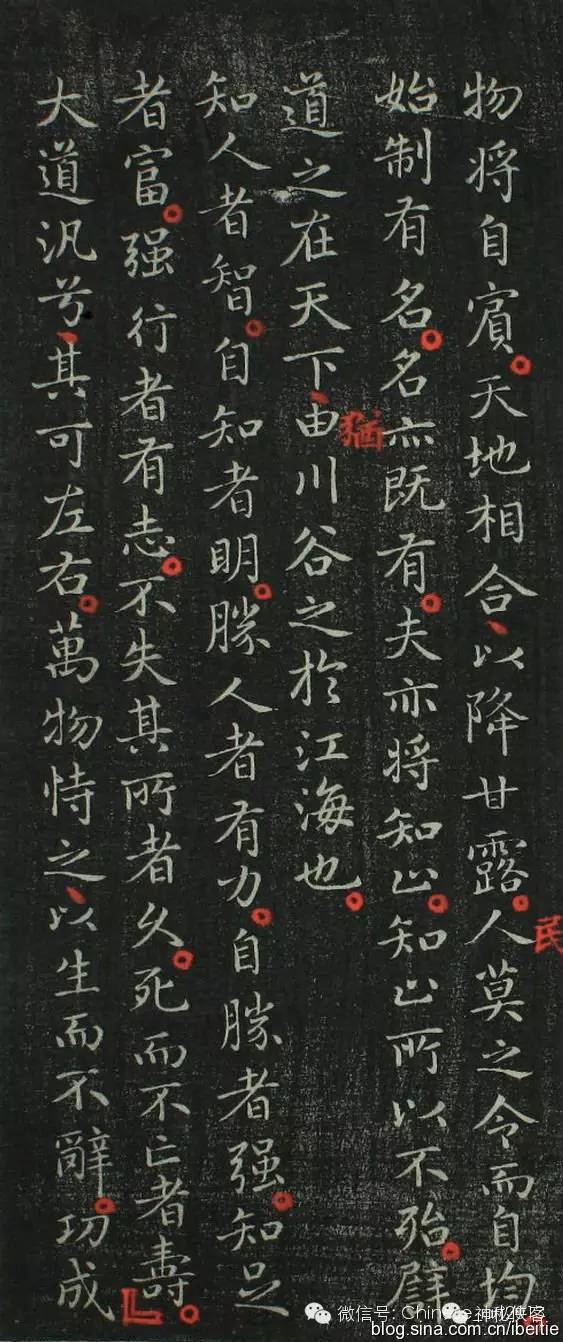 物将自賓。天地相合、以降甘露。人莫之令而自均。
民
始制有名。名亦既有。夫亦将知止。知止所以不殆。譬
道之在天下、由川谷之於江海也。
猶
知人者智。自知者明。勝人者有力。自勝者强。知足
者富。强行者有志。不失其所者久。死而不亡者壽。
大道汎兮、其可左右。萬物恃之、以生而不辭。功成
微信号: 神秘侠客
blog.sina.com.cn/ibeitie